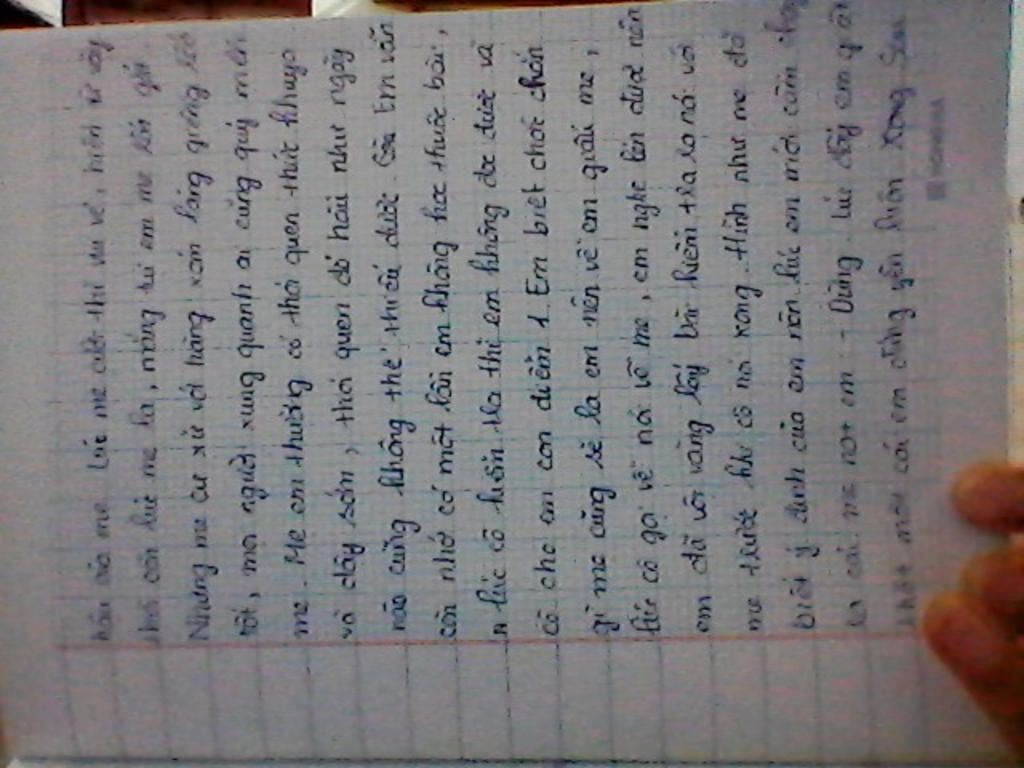 hôn vào mẹ. Lúc mẹ cười thì vui vẻ, hiền từ
nhỏ còn lúc mẹ la, mắng tụi em mẹ rất
Nhưng mẹ cư xử với hàng xóm láng giềng rất
tốt, mọi người xung quanh ai cũng quý mến
mẹ. Mẹ em thường có thói quen thức khuya
và dậy sớm, thói quen đó hầu như ngày
nào cũng không thể thiếu được. Em vẫn
còn nhớ có một lần em không học thuộc bài,
lúc cô kiểm tra thì em không đọc được và
cô cho em con điểm 1. Em biết chắc chắn
gì mẹ cũng sẽ la em nên về em giấu mẹ,
lúc cô gọi về nói với mẹ, em nghe lén được nên
em đã vội vàng lấy bài kiểm tra ra nói với
mẹ trước khi cô nói xong. Hình như mẹ đã
biết ý định của em nên lúc em mới cầm
ra cái mẹ nạt em: - Đứng lúc đấy em
một cái em đứng yên luôn. Xong